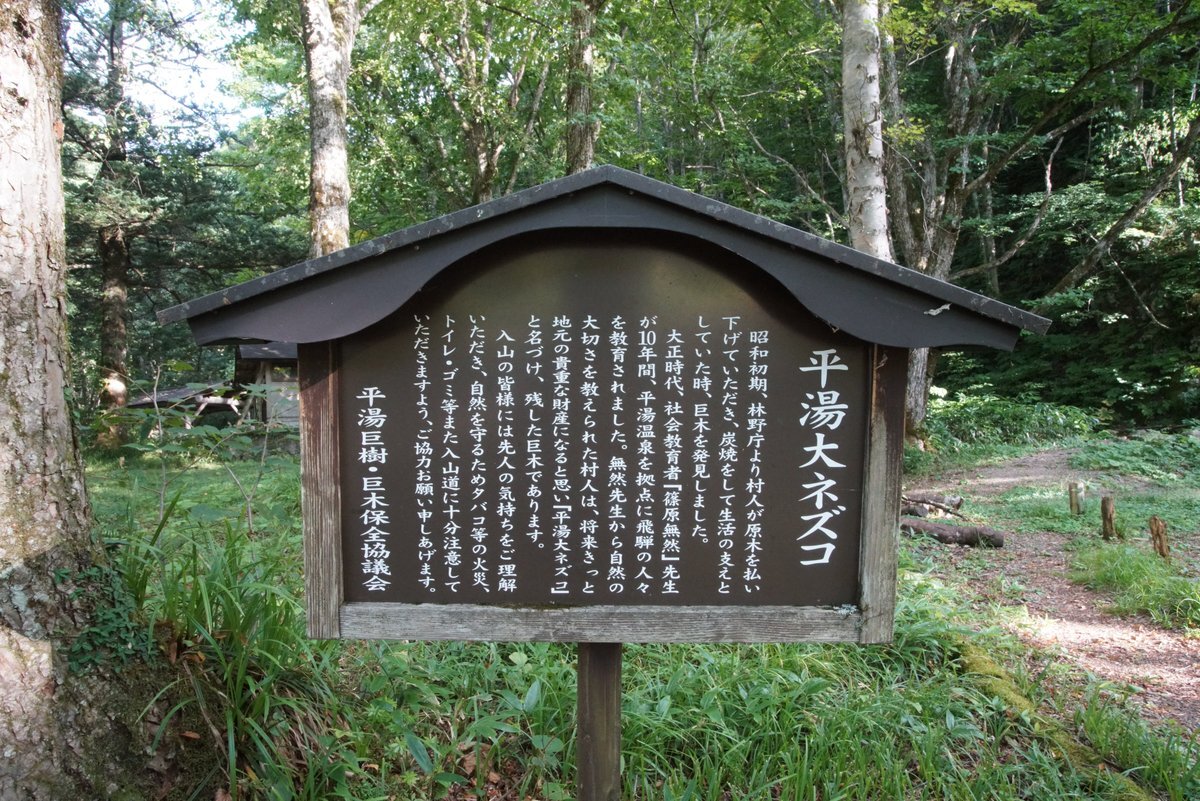 平湯大ネズコ
昭和初期、林野庁より村人が原木を払い
下げていただき、炭焼をして生活の支えと
していた時、巨木を発見しました。
大正時代、社会教育者『篠原無然』先生
が10年間、平湯温泉を拠点に飛騨の人々
を教育されました。無然先生から自然の
大切さを教えられた村人は、将来きっと
地元の貴重な財産になると思い『平湯大ネズコ』
と名づけ、残した巨木であります。
入山の皆様には先人の気持ちをご理解
いただき、自然を守るためタバコ等の火災、
トイレ・ゴミ等また入山道に十分注意して
いただきますよう、ご協力お願い申しあげます。
平湯巨樹・巨木保全協議会